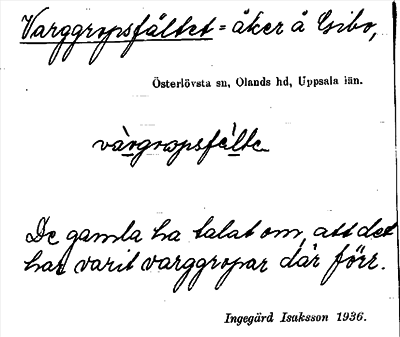 Varggropsfältet = åker å Gibo,
Österlövsta sn, Olands hd, Uppsala län.
vàrgropsfèlte
De gamla ha talat om, att det
har varit varggropar där förr.
Ingegärd Isaksson 1936.